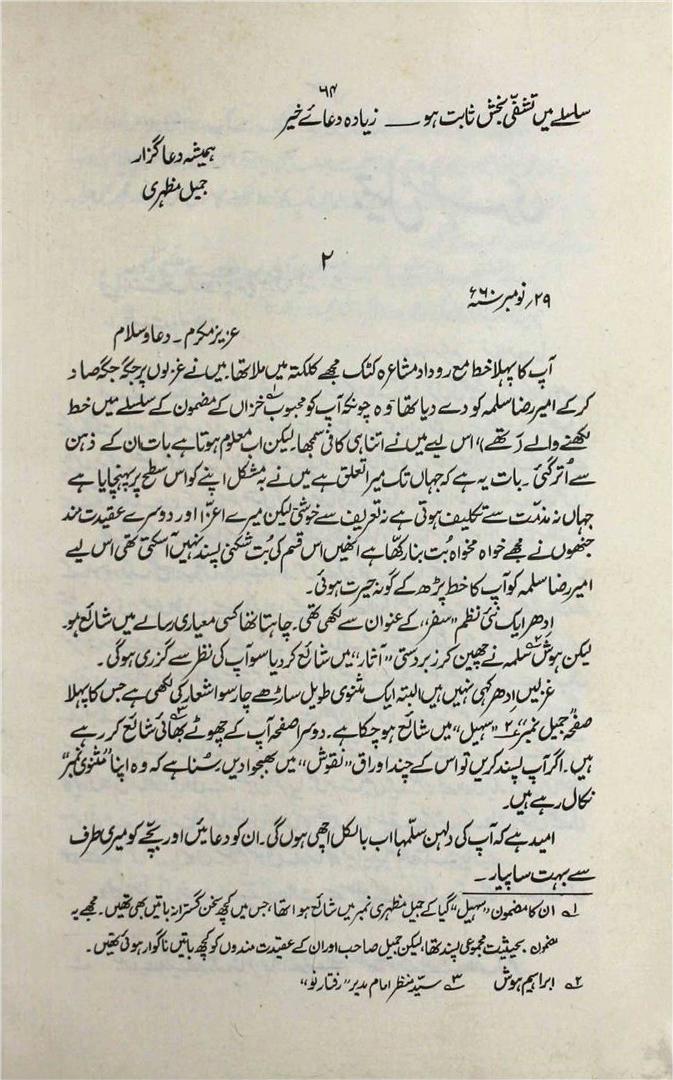 ۶۴
سلسلے میں تشفّی بخش ثابت ہو ــــ زیادہ دعائے خیر
ہمیشہ دعا گزار
جمیل مظہری
۲
۲۹؍ نومبر سنہ ۶۰ء
عزیز مکرم ۔ دعا و سلام
آپ کا پہلا خط مع روداد مشاعرہ کٹک مجھے کلکتہ میں ملا تھا۔ میں نے غزلوں پر جگہ جگہ صاد
کر کے امیر رضا سلمہ کو دے دیا تھا وہ چونکہ آپ کو محبوب خزاں۱؎ کے مضمون کے سلسلے میں خط
لکھنے والے تھے، اس لیے میں نے اتنا ہی کافی سمجھا۔ لیکن اب معلوم ہوتا ہے بات ان کے ذہن
سے اُتر گئی ۔ بات یہ ہے کہ جہاں تک میرا تعلق ہے میں نے بہ مشکل اپنے کو اس سطح پر پہنچایا ہے
جہاں نہ مذمّت سے تکلیف ہوتی ہے نہ تعریف سے خوشی لیکن میرے اعزّا اور دوسرے عقیدت مند
جنھوں نے مجھے خواہ مخواہ بُت بنا رکھا ہے انھیں اس قسم کی بُت شکنی پسند نہیں آسکتی تھی اس لیے
امیر رضا سلمہ کو آپ کا خط پڑھ کے گونہ حیرت ہوئی۔
ادھر ایک نئی نظم ”سفر“ کے عنوان سے لکھی تھی۔ چاہتا تھا کسی معیاری رسالے میں شائع ہو۔
لیکن ہوش۲؎ سلمہ نے چھین کر زبردستی ”آثار“ میں شائع کر دیا سو آپ کی نظر سے گزری ہوگی ۔
غزلیں ادھر کہی نہیں ہیں البتہ ایک مثنوی طویل ساڑھے چار سو اشعار کی لکھی ہے جس کا پہلا
صفحہ جمیل نمبر ۲ ”سہیل“ میں شائع ہوچکا ہے۔ دوسرا صفحہ آپ کے چھوٹے بھائی۳؎ شائع کر رہے
ہیں۔ اگر آپ پسند کریں تو اس کے چند اوراق ”نقوش“ میں بھجوا دیں سنا ہے کہ وہ اپنا ”مثنوی نمبر“
نکال رہے ہیں۔
امید ہے کہ آپ کی دلہن سلّمہا اب بالکل اچھی ہوں گی۔ ان کو دعائیں اور بچّے کو میری طرف
سے بہت سا پیار ۔
۱؎ ان کا مضمون ”سہیل“ گیا کے جمیل مظہری نمبر میں شائع ہوا تھا، جس میں کچھ سخن گسترانہ باتیں بھی تھیں۔ مجھے یہ
مضمون بحیثیت مجموعی پسند تھا، لیکن جمیل صاحب اور ان کے عقیدت مندوں کو کچھ باتیں ناگوار ہوئی تھیں۔
۲؎ ابراہیم ہوش ۳؎ سیّد منظر امام مدیر ”رفتارِ نو“